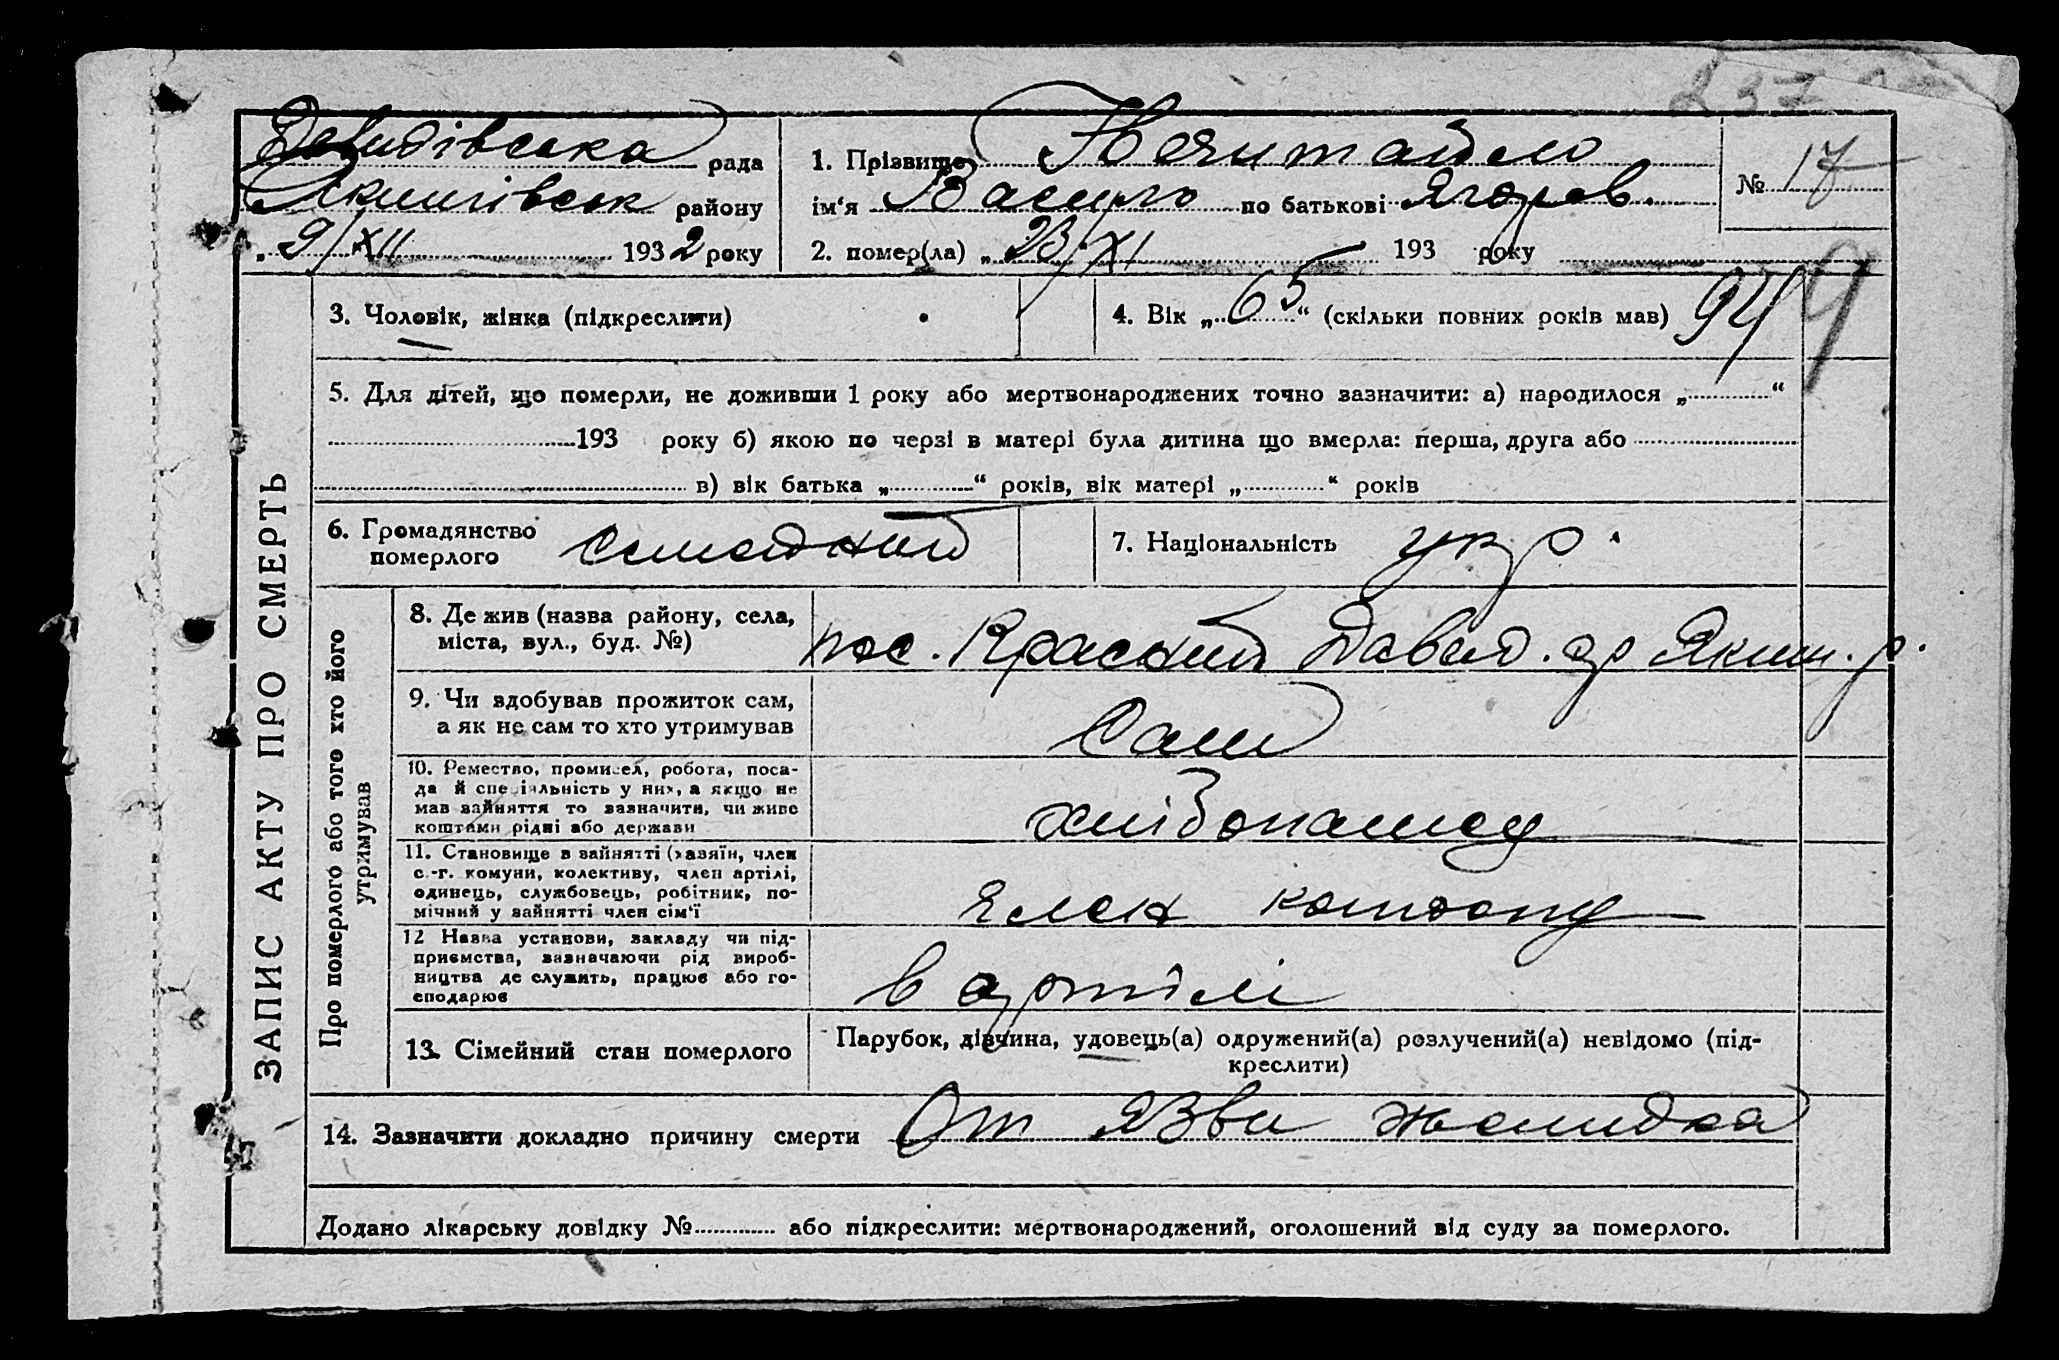 237
Давидівська рада
Якимівськ району
„ 9/XII 1932 року
1. Прізвище Нечитайло
ім‘я Василь по батькові Ягоров.
2. помер(ла) „ 23/XI 193 року
№ 17
3. Чоловік, жінка (підкреслити)
4. Вік „ 65 “ (скільки повних років мав) 94
5. Для дітей, що померли, не доживши 1 року або мертвонароджених точно зазначити: а) народилося „ “
193 року б) якою по черзі в матері була дитина що вмерла: перша, друга або
в) вік батька „ “ років, вік матері „ “ років
6. Громадянство
померлого
7. Національність укр.
ЗАПИС АКТУ ПРО СМЕРТЬ
Про померлого або того хто його
утримував
8. Де жив (назва району, села,
міста, вул., буд. №)
пос. Красний Давид. ср Яким. р.
9. Чи здобував прожиток сам,
а як не сам то хто утримував
Сам
10. Ремество, промисел, робота, поса-
да й спеціяльність у них, а якщо не
мав зайняття то зазначити, чи живе
коштами рідні або держави
хлібопашец
11. Становище в зайнятті (хазяїн, член
с.-г. комуни, колективу, член артілі,
одинець, службовець, робітник, по-
мічний у зайнятті член сім‘ї
член колхозу
12 Назва установи, закладу чи під-
приємства, зазначаючи рід вироб-
ництва де служить, працює або го-
сподарює
в артілі
13. Сімейний стан померлого
Парубок, дівчина, удовець(а) одружений(а) розлучений(а) невідомо (під-
креслити)
14. Зазначити докладно причину смерти От язви жолудка
Додано лікарську довідку № або підкреслити: мертвонароджений, оголошений від суду за померлого.